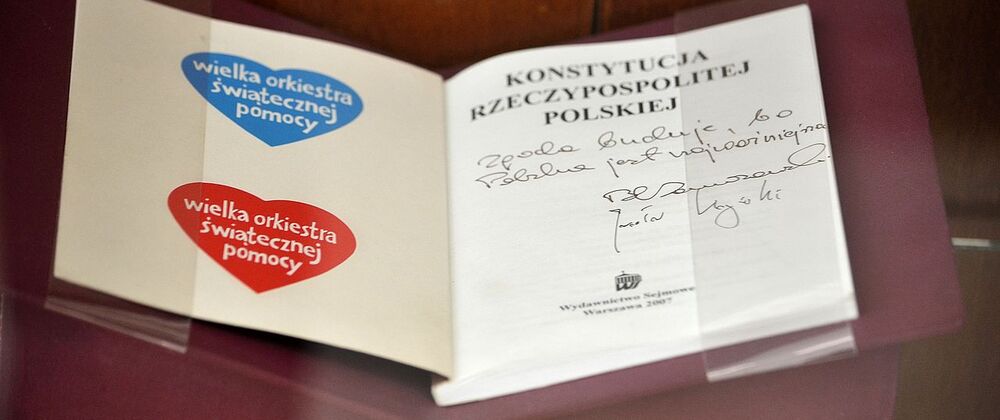 wielka orkiestra
świątecznej
pomocy
wielka orkiestra
świątecznej
pomocy
KONSTYTUCJA
RZECZYPOSPOLITEJ
POLSKIEJ
Zgoda buduje, bo
Polska jest najważniejsza
Wydawnictwo Sejmowe
Warszawa 2007